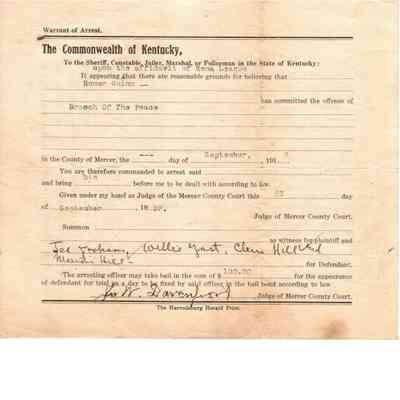 Warrant of Arrest.
The Commonwealth of Kentucky,
To the Sheriff, Constable, Jailer, Marshal, or Policeman in the State of Kentucky:
upon the affidavit of League
It appearing that there are reasonable grounds for believing that
Homer
has committed the offense of
Breach Of The Peace
in the County of Mercer, the --- day of September, 191
You are therefore commanded to arrest said
him
and bring before me to be dealt with according to law.
Given under my hand as Judge of the Mercer County Court this day
of September
Judge of Mercer County Court.
Summon
as witness for plaintiff and
Willie Yast, Hill
Hill
for Defendant.
The arresting officer may take bail in the sum of $ 100.00 for the appearance
of defendant for trial on a day to be fixed by said officer in the bail bond according to law
Davenport Judge of Mercer County Court.
The Harrodsburg Herald Print.